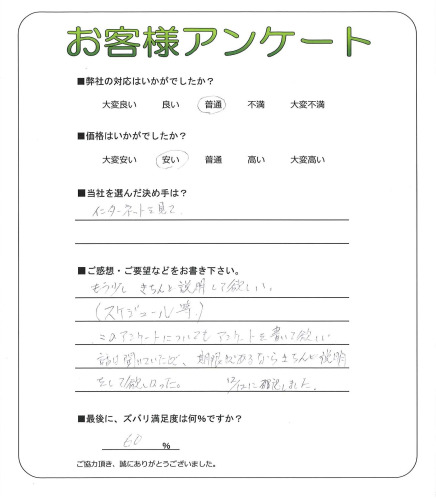 お客様アンケート
■弊社の対応はいかがでしたか？
大変良い 良い 普通 不満 大変不満
■価格はいかがでしたか？
大変安い 安い 普通 高い 大変高い
■当社を選んだ決め手は？
インターネットを見て
■ご感想・ご要望などをお書き下さい。
もう少し きちんと説明して欲しい。
(スケジュール等)
このアンケートについてもアンケートを書いて欲しい
話は聞いていたが、期限があるならきちんと説明
をして欲しかった。 に確認しました。
■最後に、ズバリ満足度は何％ですか？
60 ％
ご協力頂き、誠にありがとうございました。